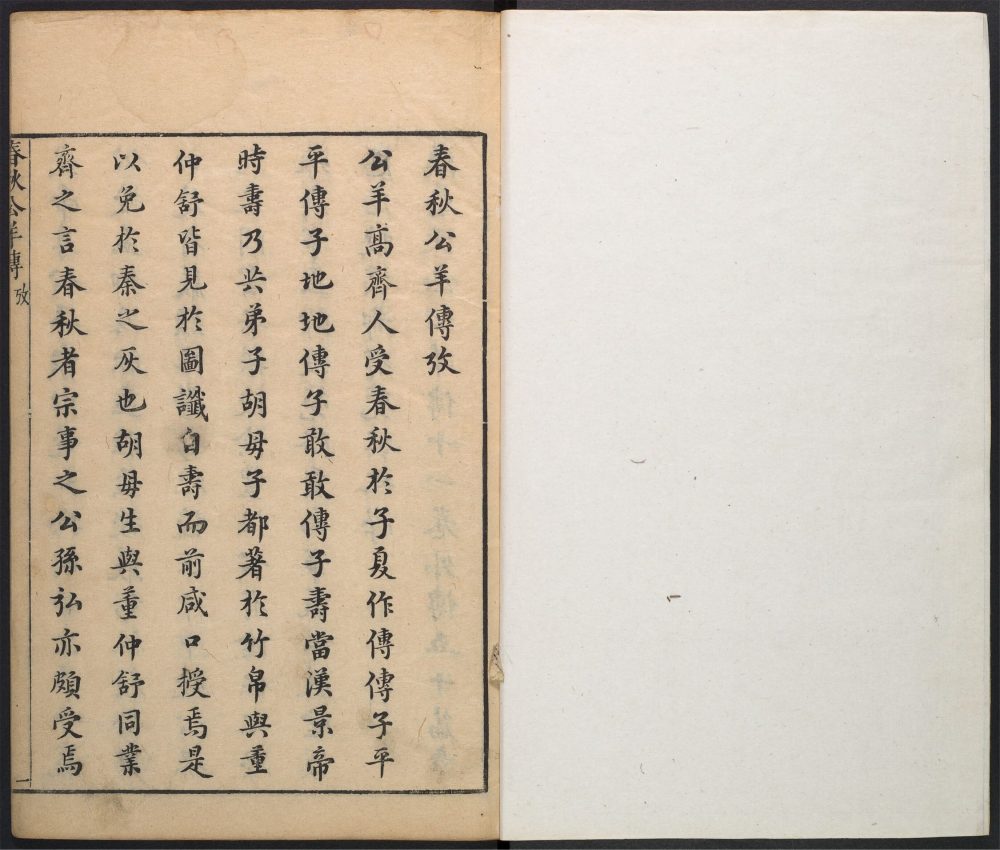 春秋公羊傳攷
公羊高齊人受春秋於子夏作傳傳子平
平傳子地地傳子敢敢傳子壽當漢景帝
時壽乃共弟子胡毋子都著於竹帛與董
仲舒皆見於圖讖自壽而前咸口授焉是
以免於秦之灰也胡毋生與董仲舒同業
齊之言春秋者宗事之公孫弘亦頗受焉
春秋公羊傳 攷
一